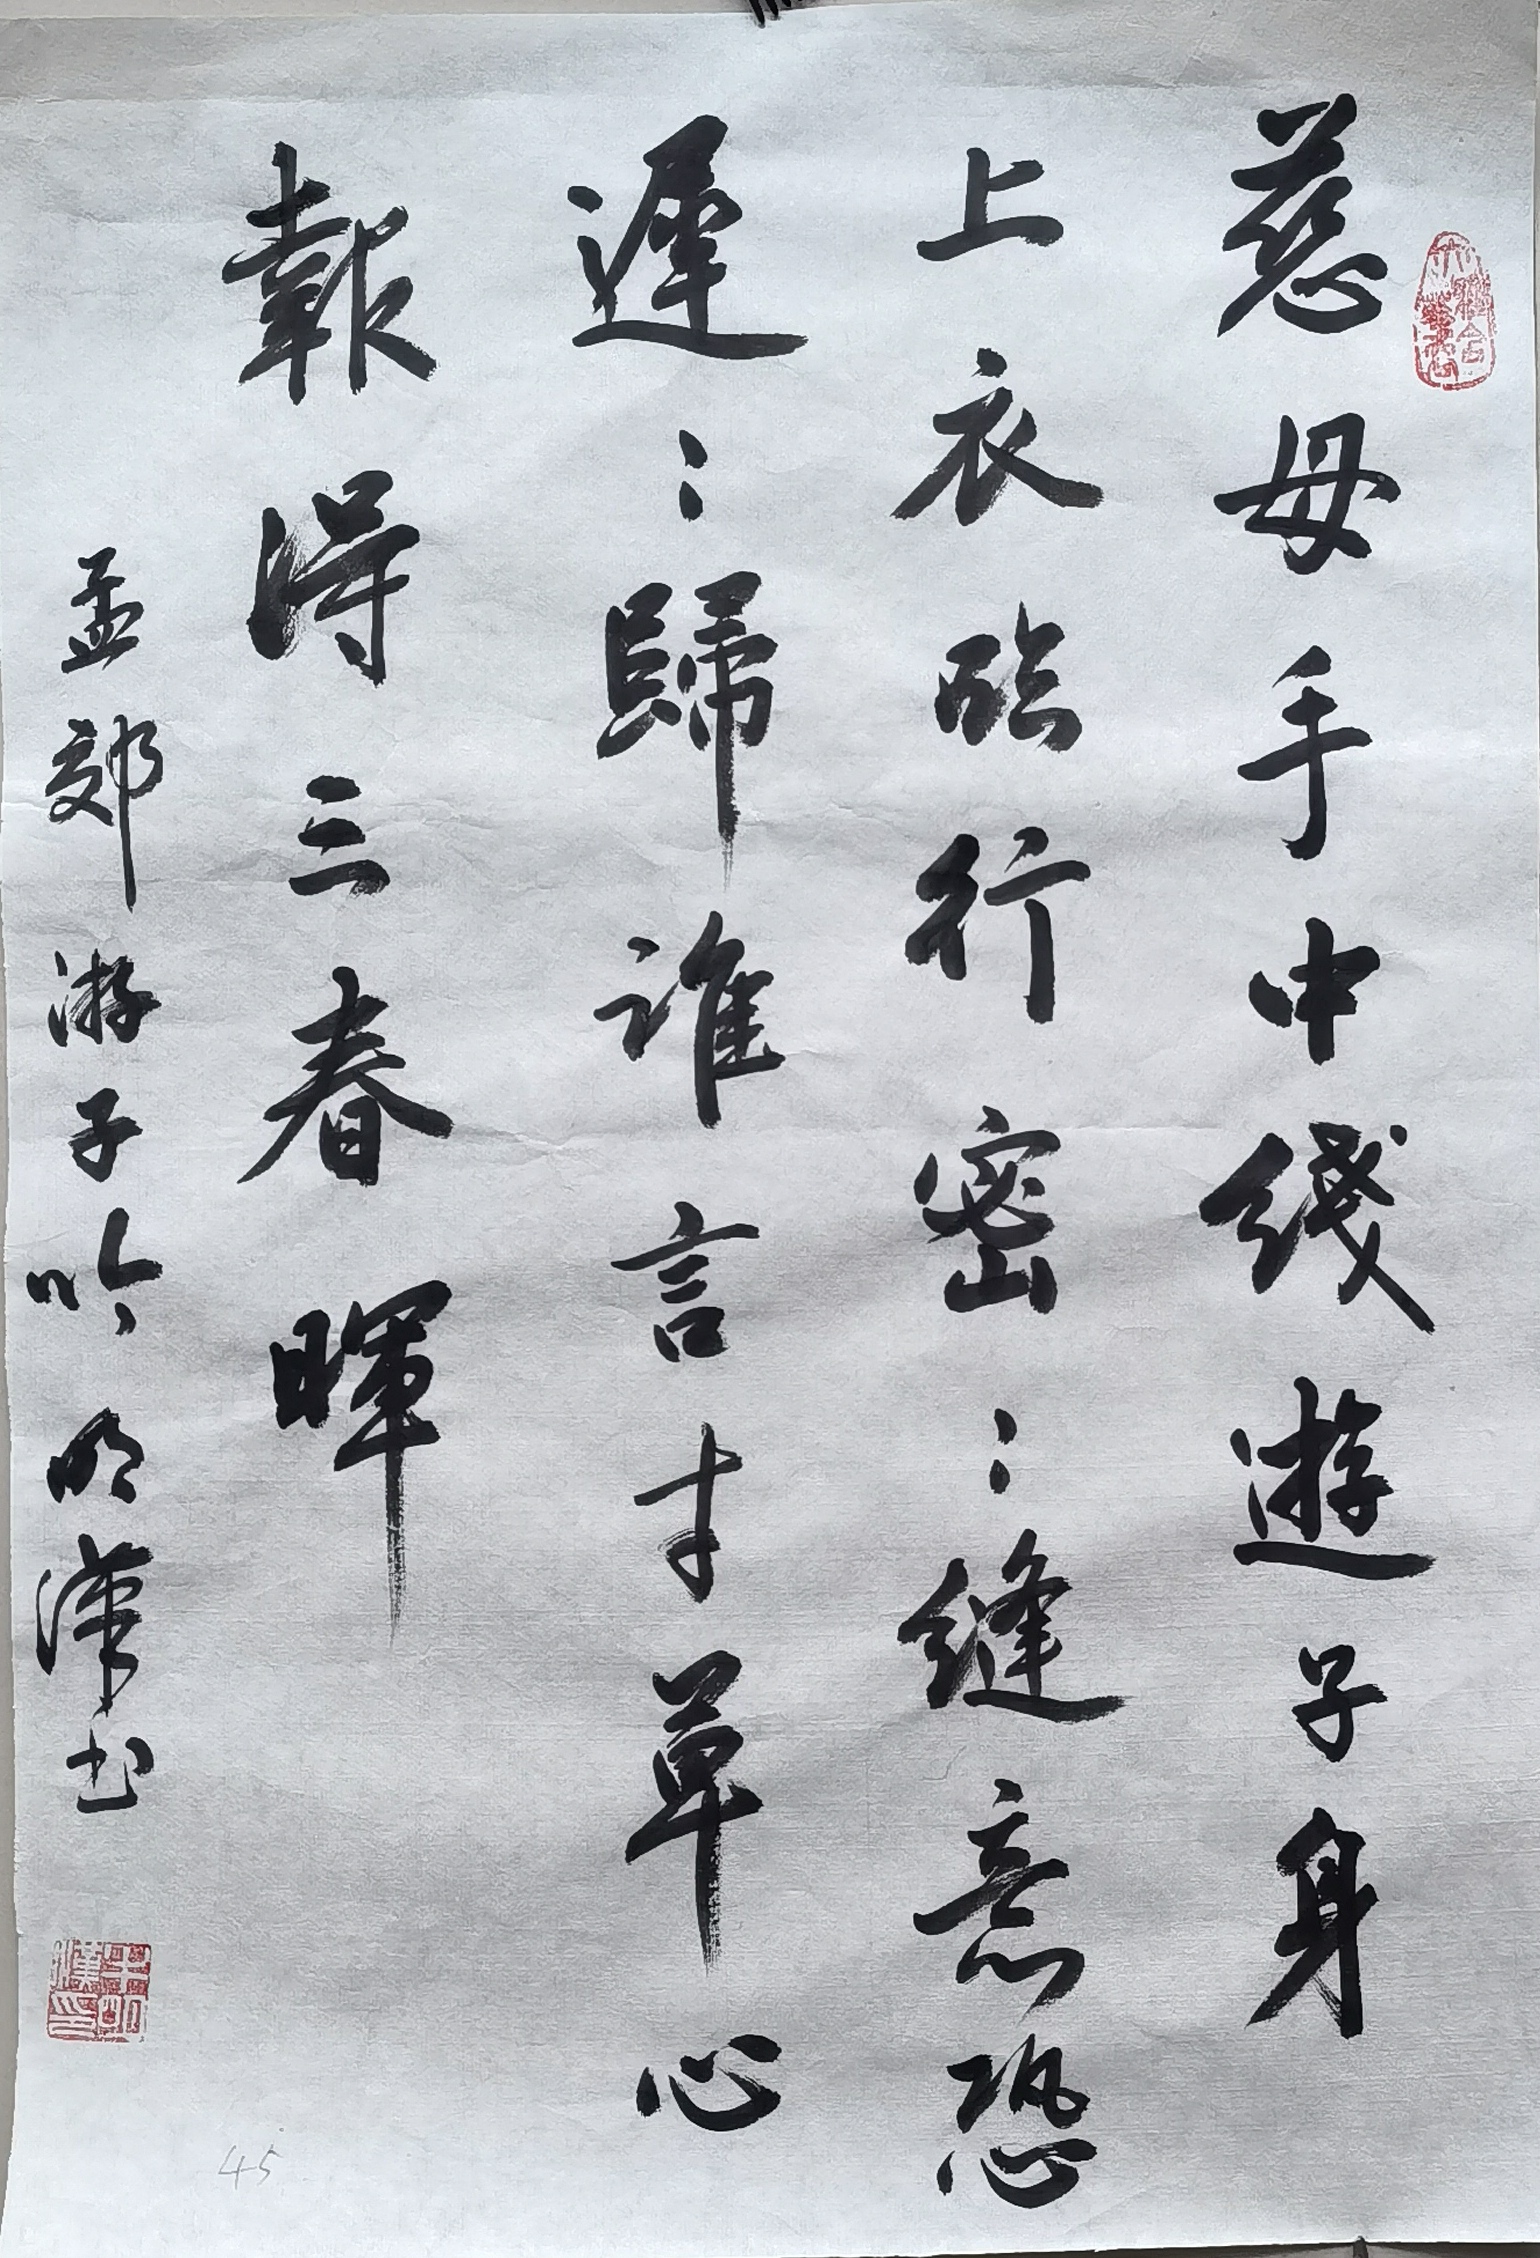 慈母手中綫遊子身
上衣臨行密：縫意恐
遲：歸誰言寸草心
報得三春暉
孟郊游子吟明漢书
45